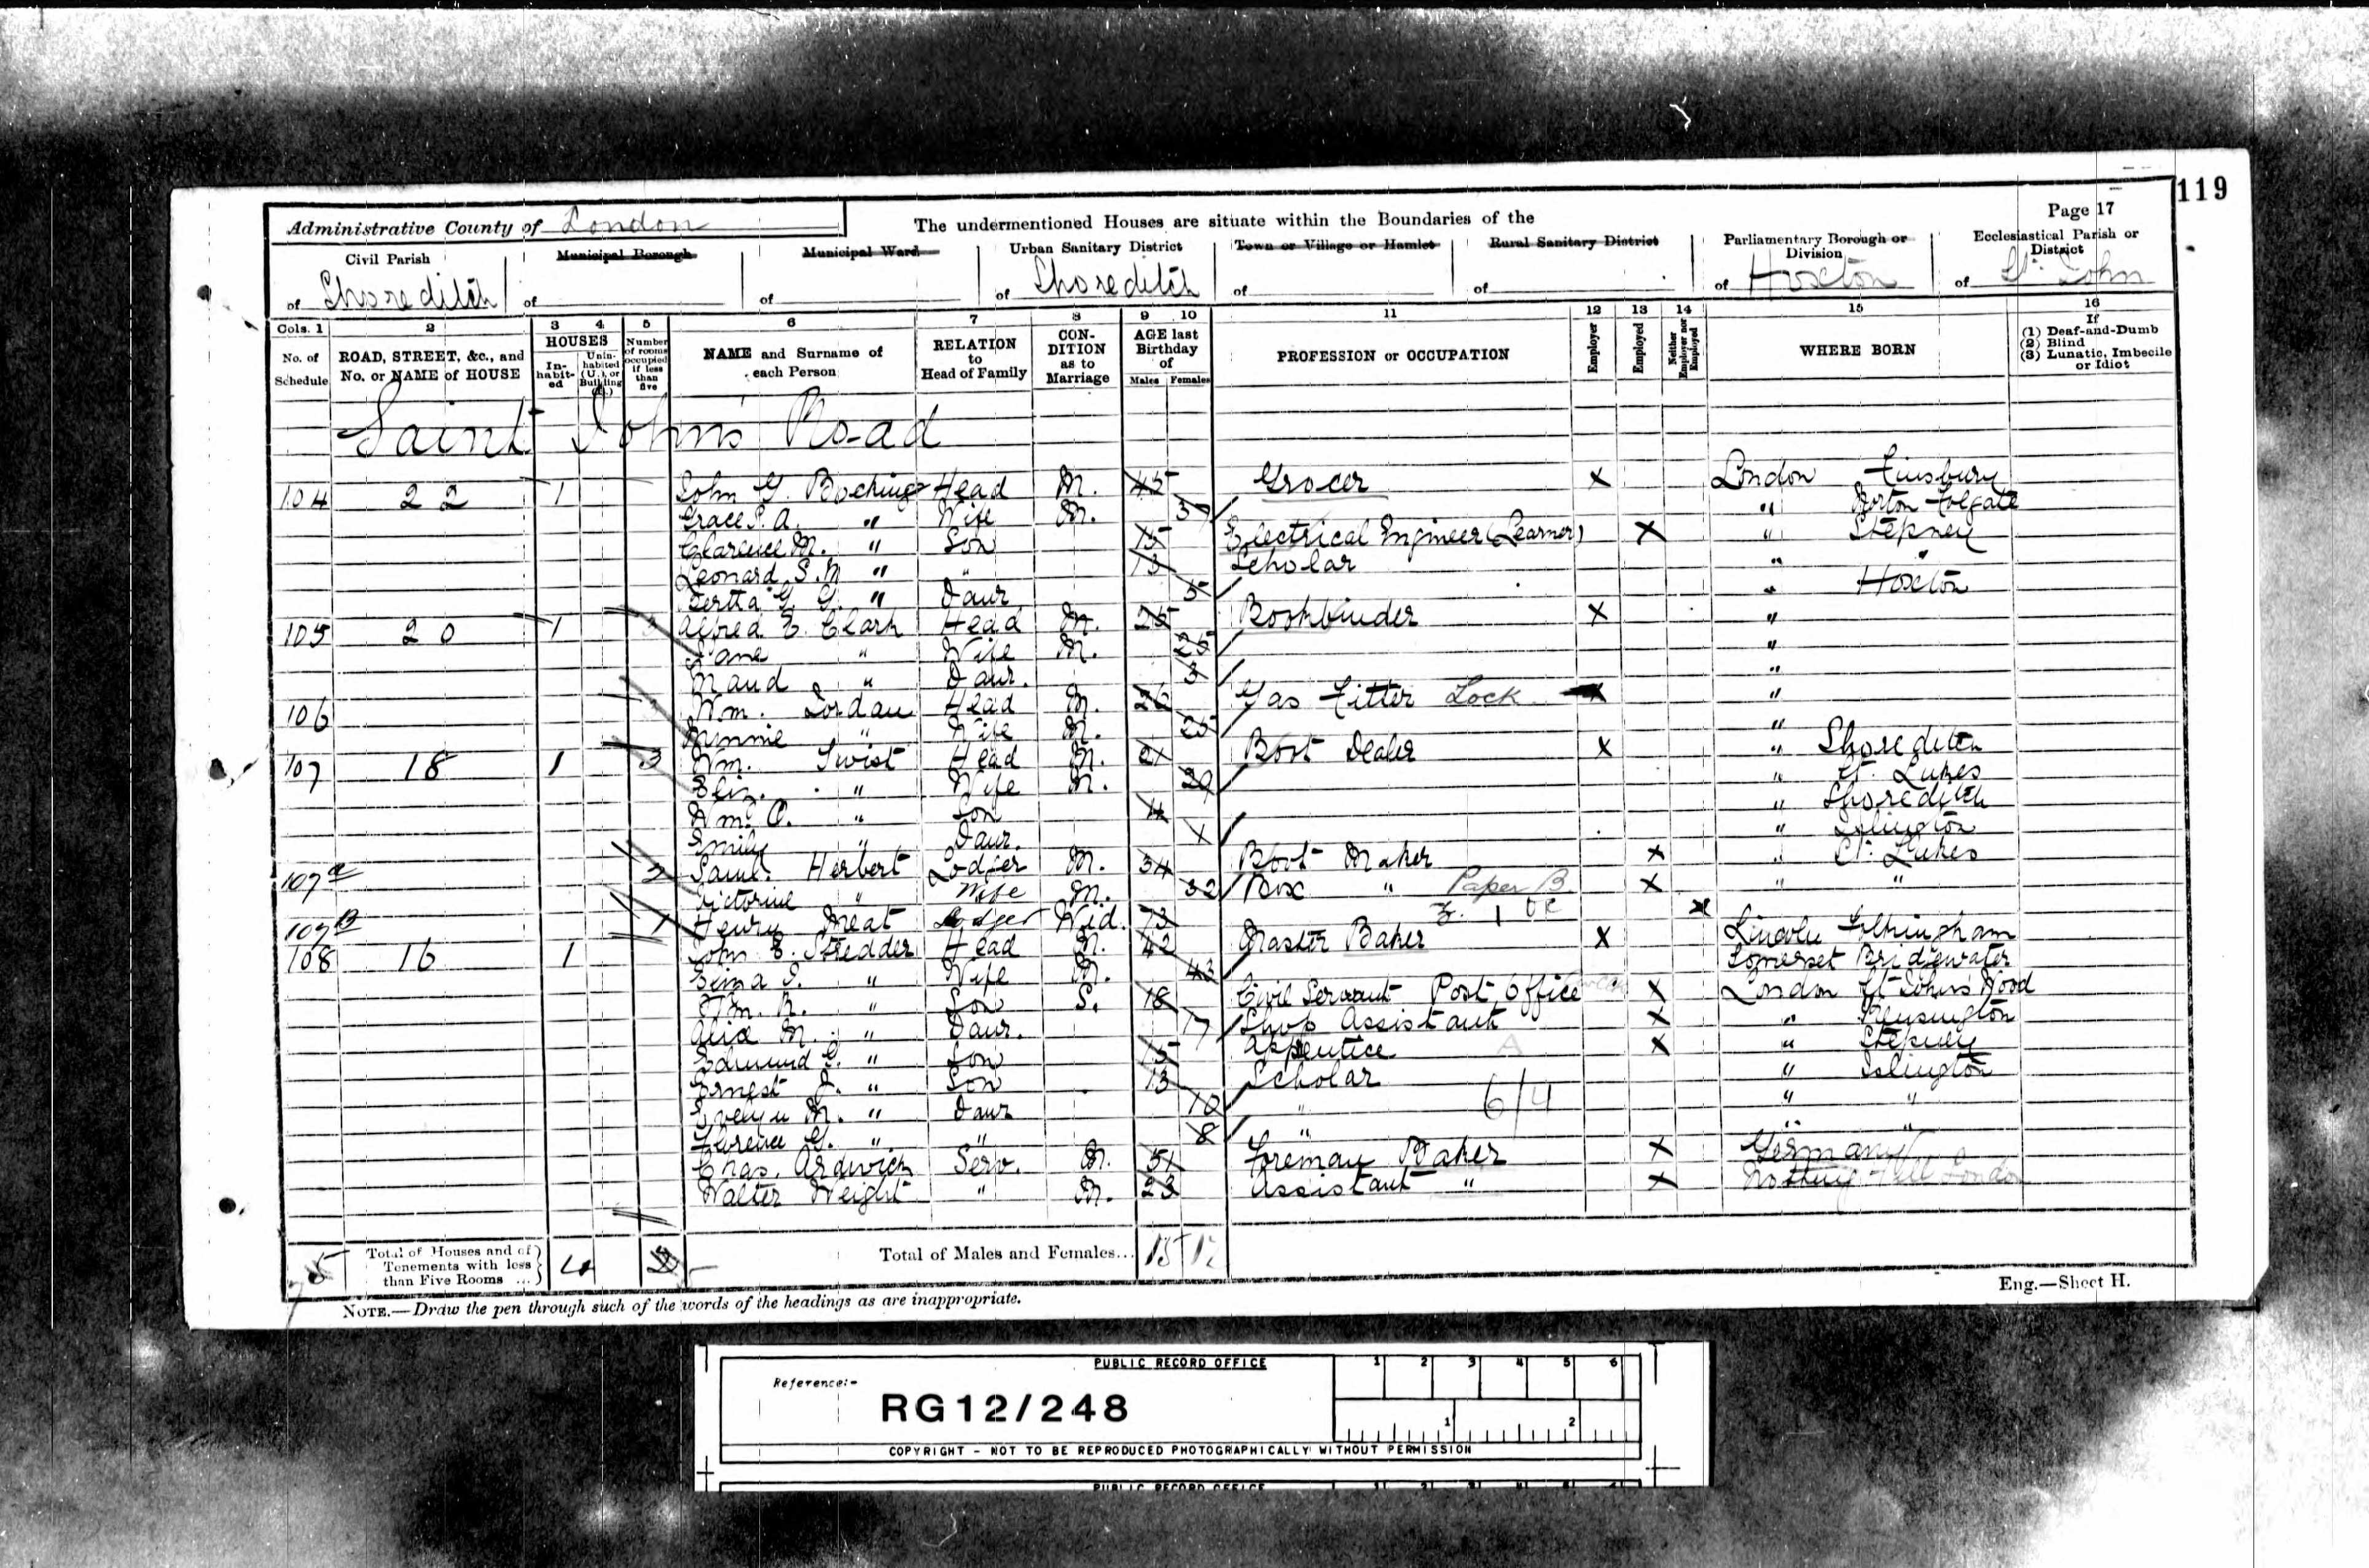 119
Administrative County of London
The undermentioned Houses are situate within the Boundaries of the
Page 17
Civil Parish of Shoreditch
Municipal Borough of
Municipal Ward of
Urban Sanitary District of Shoreditch
Town or Village or Hamlet of
Rural Sanitary District of
Parliamentary Borough or Division of Hoxton
Ecclesiastical Parish or District of St. John
Cols. 1 2 3 4 5 6 7 8 9 10 11 12 13 14 15 16
No. of Schedule
ROAD, STREET, &c., and No. or NAME of HOUSE
HOUSES
In-habit-ed
Unin-habited (U.), or Building (B.)
Number of rooms occupied if less than five
NAME and Surname of each Person
RELATION to Head of Family
CON-DITION as to Marriage
AGE last Birthday of
Males Females
PROFESSION or OCCUPATION
Employer
Employed
Neither Employer nor Employed
WHERE BORN
If (1) Deaf-and-Dumb (2) Blind (3) Lunatic, Imbecile or Idiot
Saint John's Road
104 22 1 John G. Bocking Head M. 45 Grocer X London Finsbury
Grace S. A. " Wife M. " Norton Folgate
Clarence M. " Son 15 Electrical Engineer (Learner) X " Stepney
Leonard S. " " 13 Scholar " "
G. G. " Daur 5 " Hoxton
105 20 1 Alfred E. Clark Head M. 25 Bookbinder X "
Jane " Wife M. 25 "
Maud " Daur. 3 "
106 Wm. Jordan Head M. 26 Gas Fitter Lock X "
Minnie " Wife M. 25 "
107 18 1 3 Wm. Twist Head M. Boot Dealer X " Shoreditch
Eliz. " Wife M. 29 " St. Lukes
Wm. O. " Son 4 " Shoreditch
Emily " Daur. " Islington
107a 2 Saml. Herbert Lodger M. 34 Boot Maker X " St. Lukes
" Wife M. 32 Box " Paper B X " "
107B 1 Henry Neat Lodger Wid. 73 X
108 16 1 John E. Stredder Head M. 42 Master Baker X Lincoln
S. " Wife M. 43 Somerset Bridgewater
Wm. R. " Son S. 18 Civil Servant Post Office X London St Johns Wood
Alice M. " Daur. 17 Shop Assistant X " Kensington
Edmund G. " Son 15 Apprentice X " Stepney
Ernest J. " Son 13 Scholar " Islington
Evelyn M. " Daur 10 " 6/4 " "
Florence G. " " 8 " " "
Chas. Ardwick Serv. M. 51 Foreman Baker X Germany
Walter Weight " M. 23 Assistant " X Notting Hill London
5 Total of Houses and of Tenements with less than Five Rooms ... 4
Total of Males and Females... 15 12
Eng.—Sheet H.
NOTE.—Draw the pen through such of the words of the headings as are inappropriate.
PUBLIC RECORD OFFICE 1 2 3 4 5 6
Reference:-
RG12/248
1 2
COPYRIGHT - NOT TO BE REPRODUCED PHOTOGRAPHICALLY WITHOUT PERMISSION
PUBLIC RECORD OFFICE 1 2 3 4 5 6